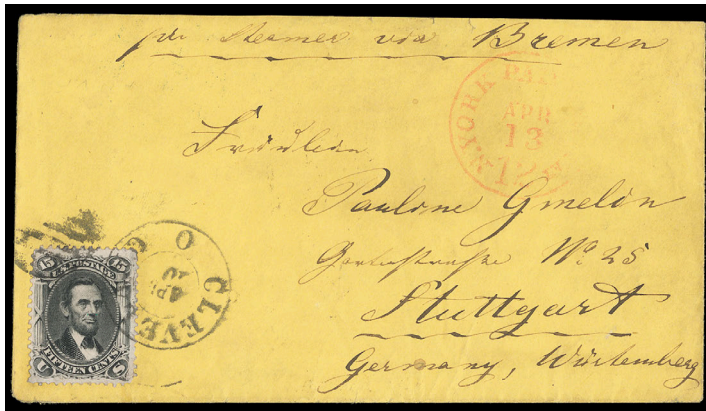 pr. Stermer via Bremen
N. YORK PAID
APR
13
12
Fräulein
Pauline Gmelin
No 25
Stuttgart
Germany, Würtemberg
CLEVE O
AP
15 U.S. POSTAGE 15
U FIFTEEN CENTS S